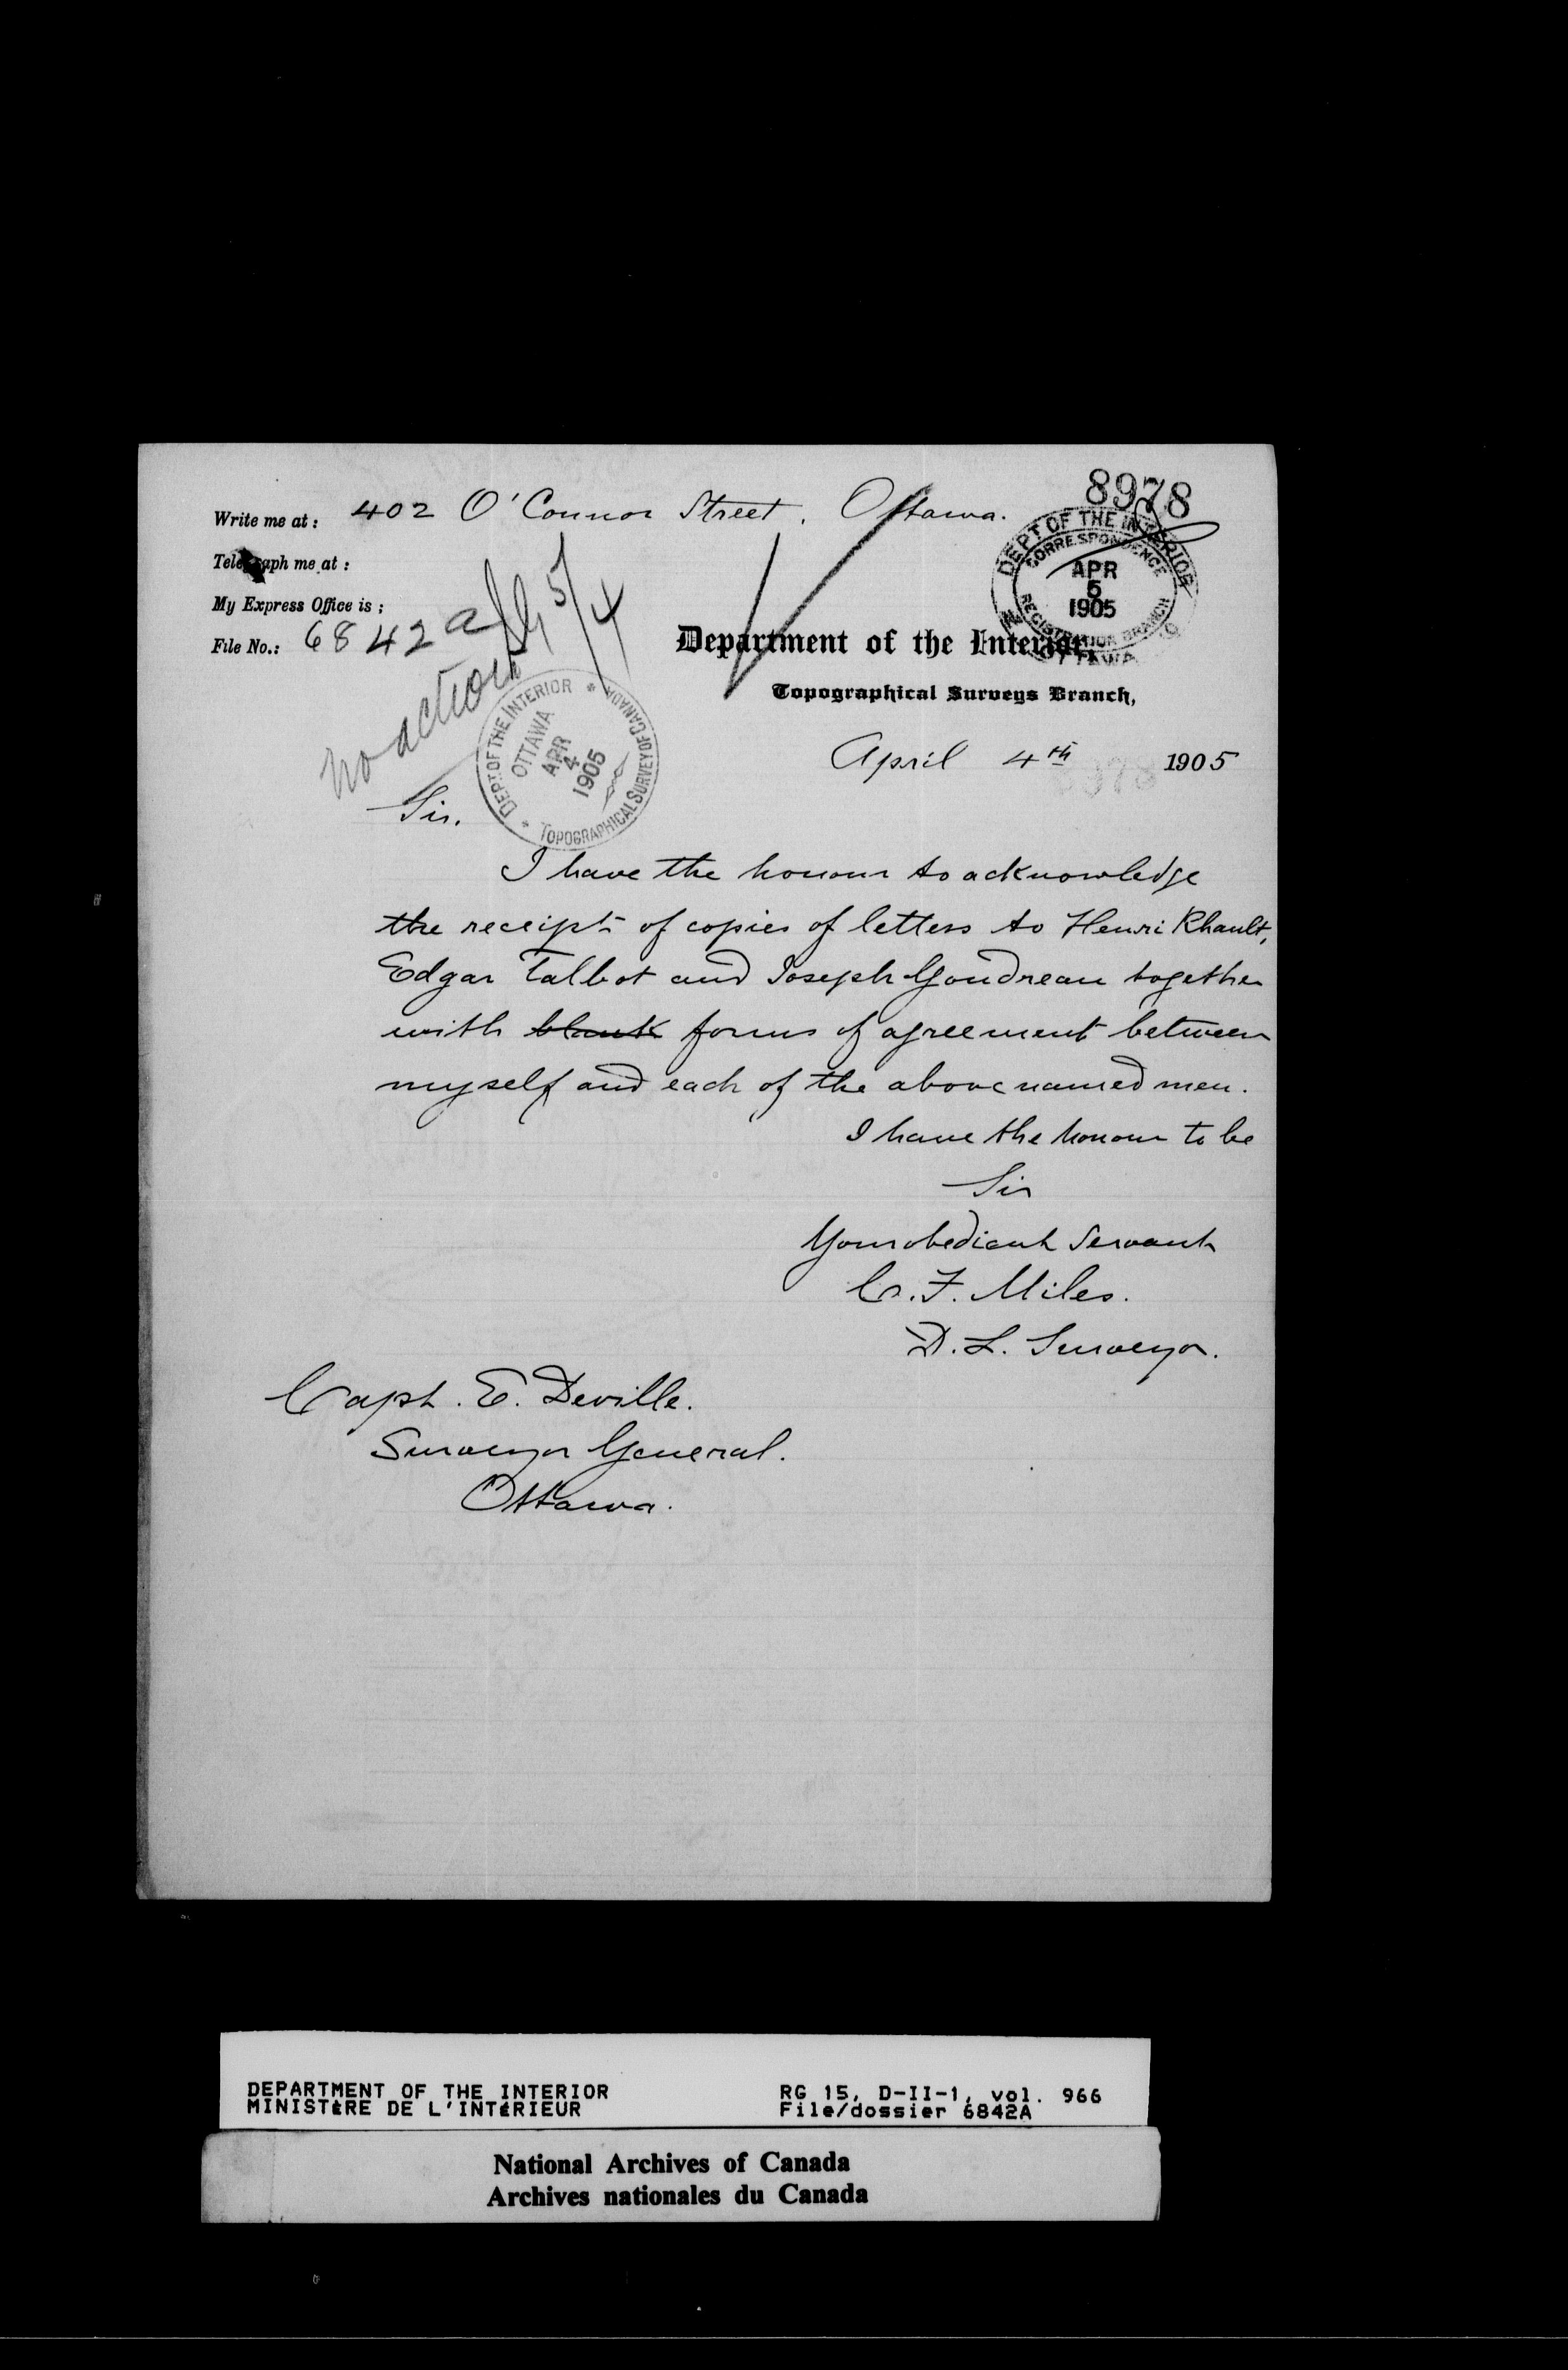 8978
Write me at: 402 O'Connor Street. Ottawa.
Telegraph me at:
My Express Office is:
File No.: 6842a
no action
5/4
DEPT OF THE INTERIOR
CORRESPONDENCE
APR
5
1905
REGISTRATION BRANCH
OTTAWA
Department of the Interior,
Topographical Surveys Branch,
DEPT. OF THE INTERIOR * TOPOGRAPHICAL SURVEY OF CANADA *
OTTAWA
APR
4
1905
April 4th 1905
8978
Sir.
I have the honour to acknowledge
the receipt of copies of letters to Henri Rhault,
Edgar Talbot and Joseph Goudreau together
with blank forms of agreement between
myself and each of the above named men.
I have the honour to be
Sir
Your obedient Servant
C. F. Miles.
D. L. Surveyor.
Capt. E. Deville.
Surveyor General.
Ottawa.
DEPARTMENT OF THE INTERIOR RG 15, D-II-1, vol. 966
MINISTÈRE DE L'INTÉRIEUR File/dossier 6842A
National Archives of Canada
Archives nationales du Canada